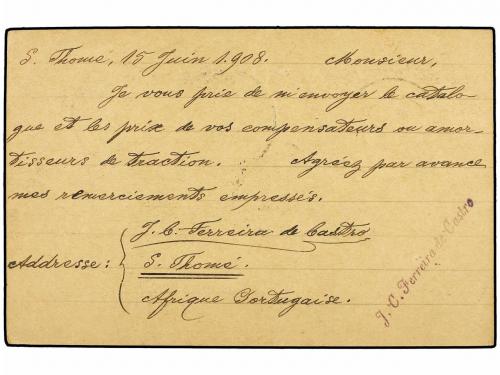 S. Thomé, 15 Juin 1.908. Monsieur,
Je vous prie de m'envoyer le catalo-
gue et les prix de vos compensateurs ou amor-
tisseurs de traction. Agréez par avance
mes remerciements empressés.
J. C. Ferreira de Castro
Addresse: S. Thomé.
Afrique Portugaise.
J. C. Ferreira de Castro